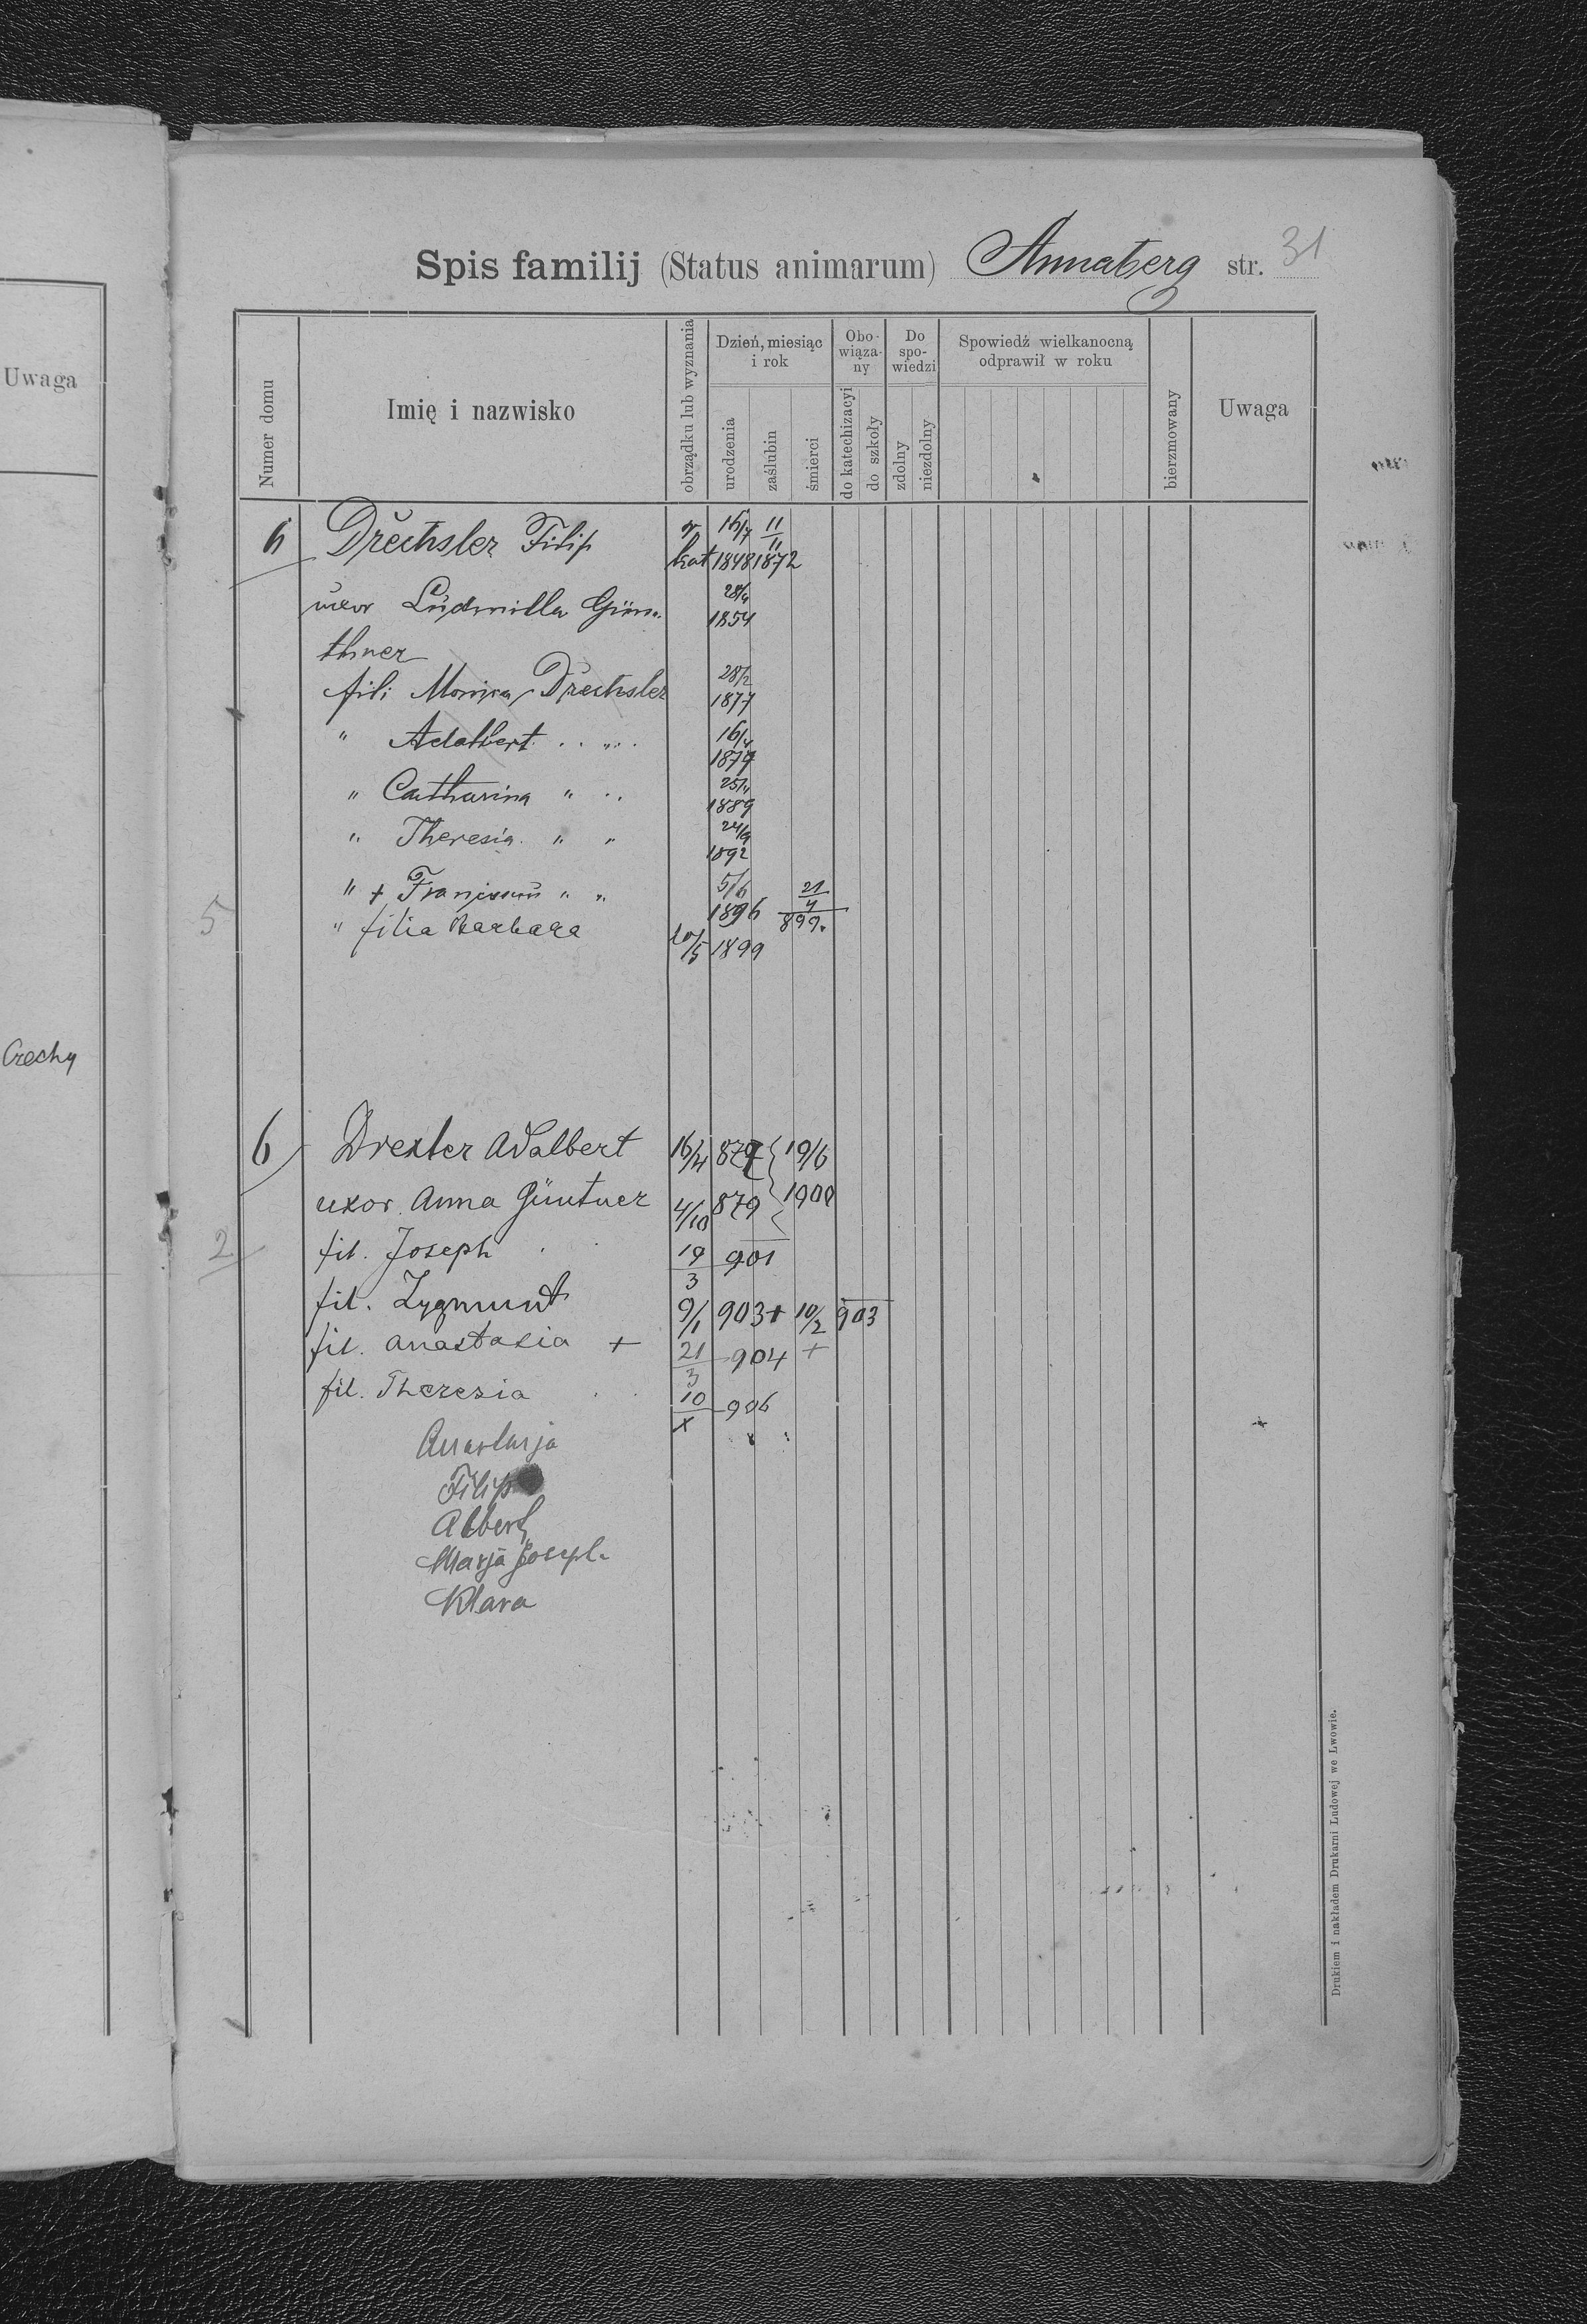 Uwaga
Crechy
Spis familij (Status animarum) Annaberg str. 31
Numer domu
Imię i nazwisko
obrządku lub wyznania
Dzień, miesiąc i rok
urodzenia
zaślubin
śmierci
Obo-
wiąza-
ny
do katechizacyi
do szkoły
Do
spo-
wiedzi
zdolny
niezdolny
Spowiedź wielkanocną
odprawił w roku
bierzmowany
Uwaga
6 Drechsler Filip r 16/7 11/11
kat 1848 1872
uxor Ludmilla Gün- 28/4
1854
thner
fili Monica Drechsler 28/2
1877
" Adalbert " 16/4
1879
" Catharina " 25/4
1889
" Theresia " " 24/9
1892
" + " " 5/6 21/4
1896 899.
5 " filia Barbara 10/5 1899
6 Drexler Adalbert 16/4 879 19/6
uxor Anna Güntner 4/10 879 1900
2 fil. Joseph 19/3 901
fil. Zygmunt 9/1 903 + 10/2 903
fil. Anastasia + 21/3 904 +
fil. Theresia 10/X 906
Anastasja
Filip
Albert
Marja Joseph.
Klara
Drukiem i nakładem Drukarni Ludowej we Lwowie.